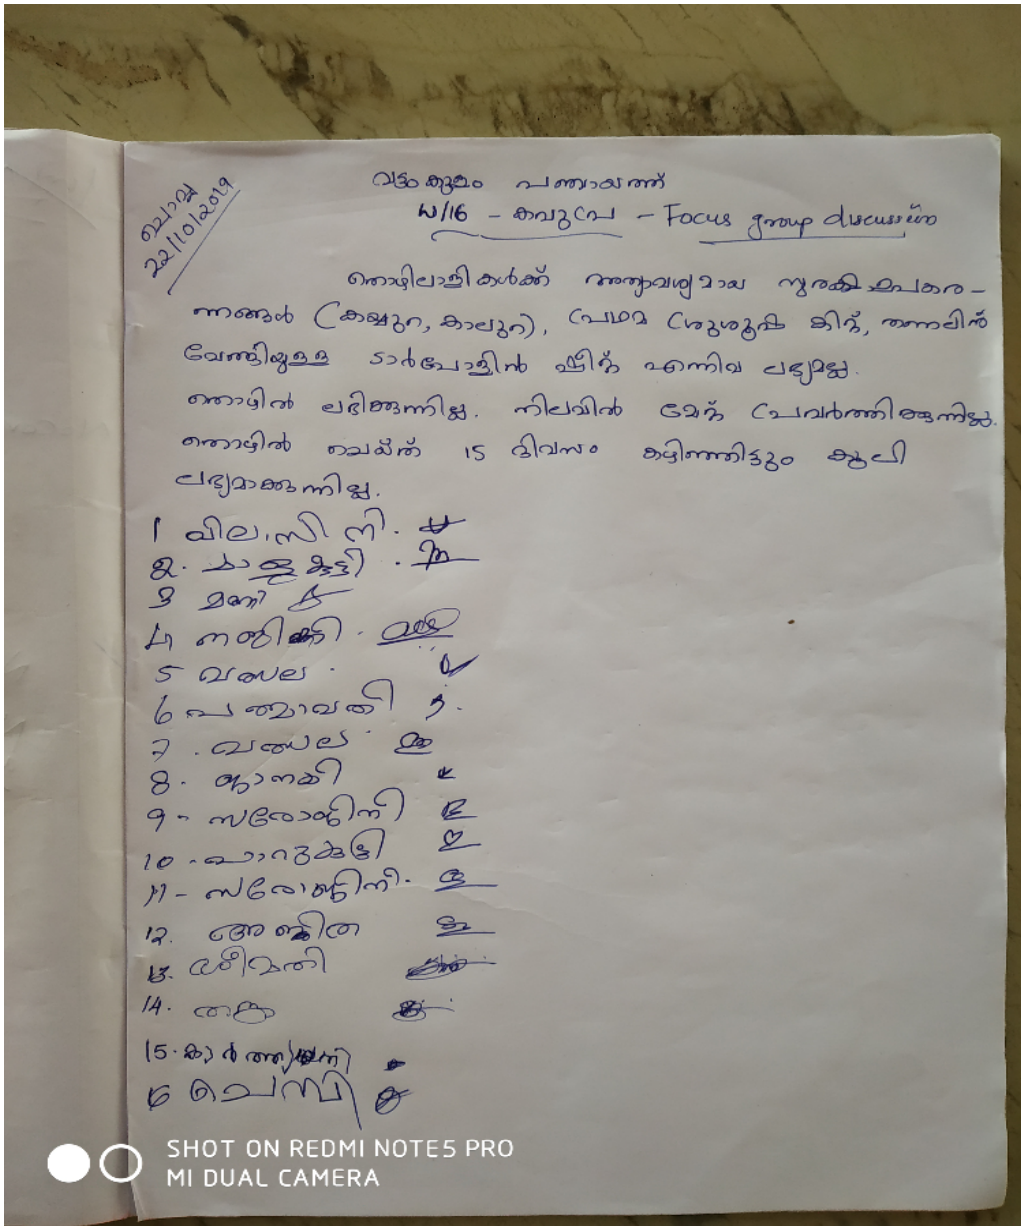 ചൊവ്വ
22/10/2019
വട്ടംകുളം പഞ്ചായത്ത്
W/16 - കവുപ്ര - Focus group discussion
തൊഴിലാളികൾക്ക് അത്യാവശ്യമായ സുരക്ഷാപകര-
ണങ്ങൾ (കയ്യുറ, കാലുറ), പ്രഥമ ശുശ്രൂഷ കിറ്റ്, തണലിന്
വേണ്ടിയുള്ള ടാർപോളിൻ ഷീറ്റ് എന്നിവ ലഭ്യമല്ല.
തൊഴിൽ ലഭിക്കുന്നില്ല. നിലവിൽ മേറ്റ് പ്രവർത്തിക്കുന്നില്ല.
തൊഴിൽ ചെയ്ത് 15 ദിവസം കഴിഞ്ഞിട്ടും കൂലി
ലഭ്യമാക്കുന്നില്ല.
1 വിലാസിനി.
2. കാളുകുട്ടി.
3 മണി
4
5 വത്സല.
6 പത്മാവതി
7. വത്സല.
8. ജാനകി
9- സരോജിനി
10 - പാറുകുട്ടി
11 - സരോജിനി.
12. അജിത
13. ശ്രീമതി
14. തങ്ക
15. കാർത്ത്യായനി
16
SHOT ON REDMI NOTE5 PRO
MI DUAL CAMERA